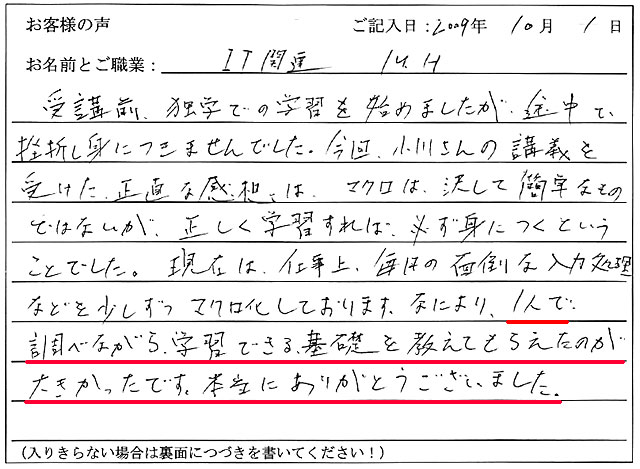 お客様の声 ご記入日：2009年 10月 1日
お名前とご職業： IT関連 M.H
受講前、独学での学習を始めましたが、途中で、
挫折し身につきませんでした。今回、小川さんの講義を
受けた、正直な感想は、マクロは、決して簡単なもの
ではないが、正しく学習すれば、必ず身につくという
ことでした。現在は、仕事上、毎日の面倒な入力処理
などを少しずつマクロ化しております。なにより、1人で
調べながら、学習できる、基礎を教えてもらえたのが
大きかったです。本当にありがとうございました。
（入りきらない場合は裏面につづきを書いてください！）